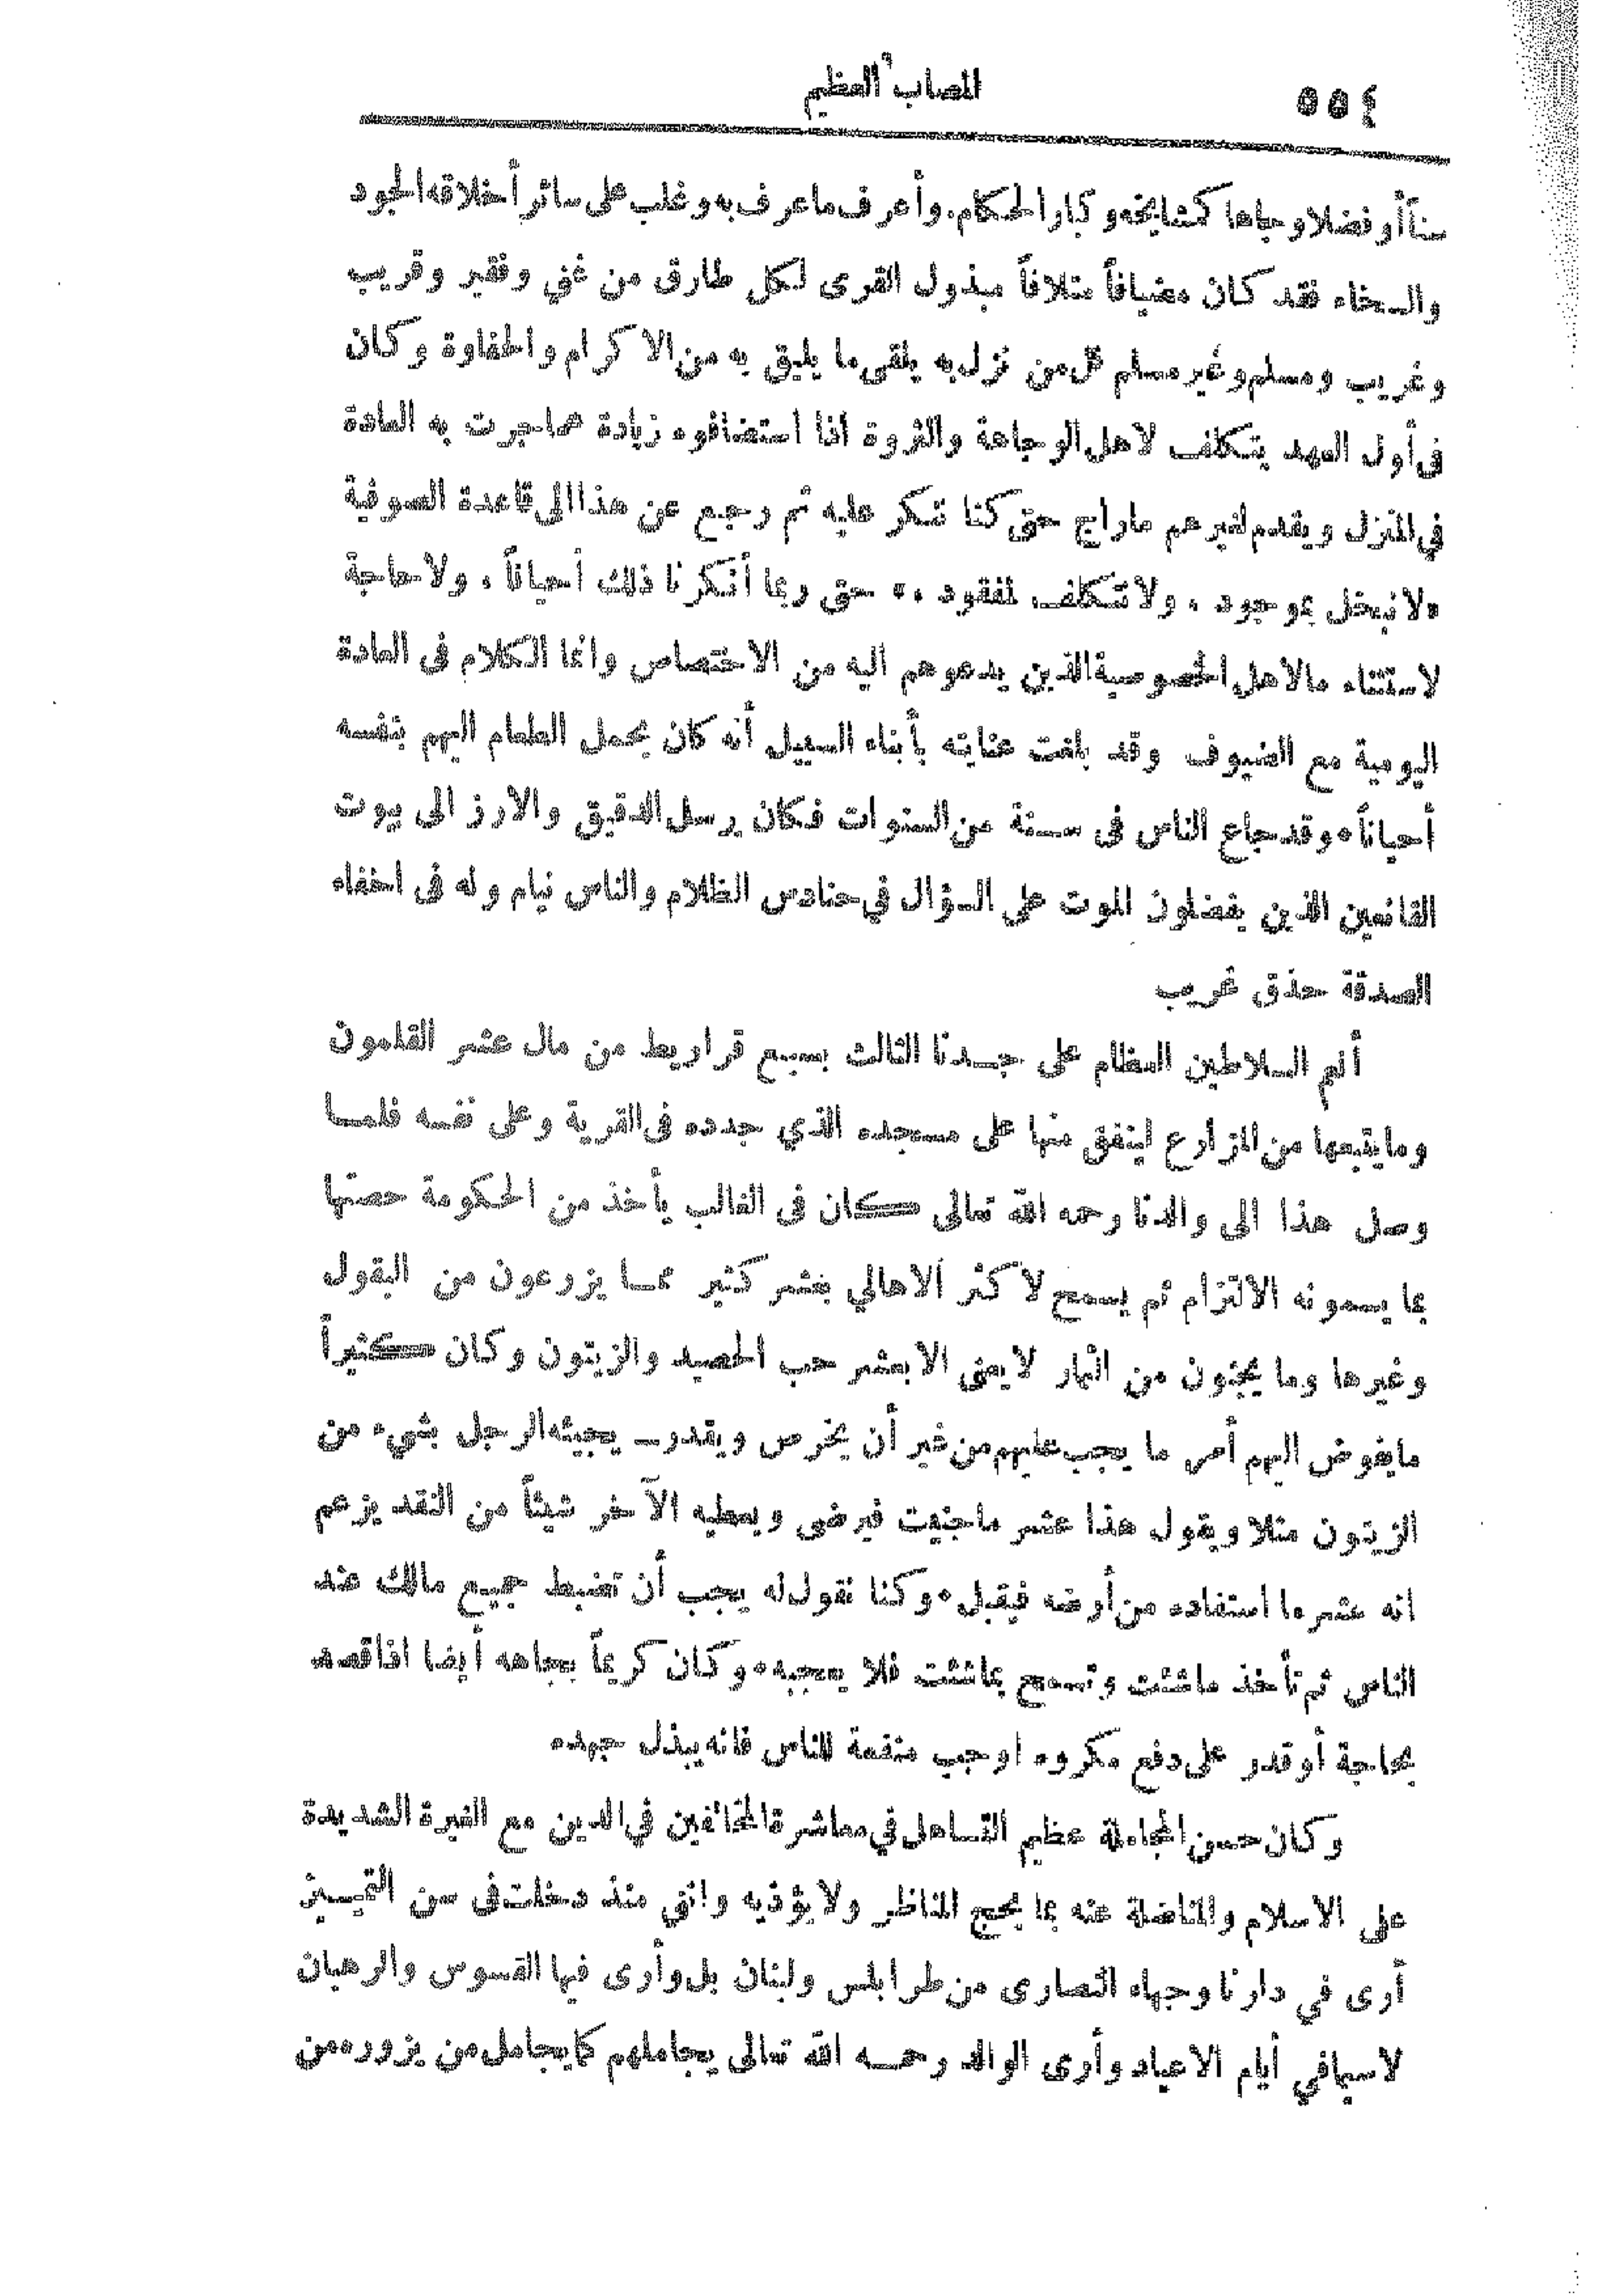 ٥٥٤
المصاب العظيم
سناً أو فضلا وجاها كمشايخه وكبار الحكام. وأعرف ما عرف به وغلب على سائر أخلاقه الجود
والسخاء فقد كان مضيافاً متلافاً مبذول القرى لكل طارق من غني وفقير وقريب
وغريب ومسلم وغير مسلم كل من نزل به يلقى ما يليق به من الاكرام والحفاوة وكان
فى أول العهد يتكلف لاهل الوجاهة والثروة اذا استضافوه زيادة عما جرت به العادة
في المنزل ويقدم لغيرهم ماراج حتى كنا ننكر عليه ثم رجع عن هذا الى قاعدة الصوفية
«لا نبخل بموجود ، ولا نتكلف لمفقود ،» حتى ربما أنكرنا ذلك أحياناً ، ولا حاجة
لاستثناء مالاهل الخصوصية الذين يدعوهم اليه من الاختصاص وانما الكلام فى العادة
اليومية مع الضيوف وقد بلغت عنايته بأبناء السبيل أنه كان يحمل الطعام اليهم بنفسه
أحياناً، وقد جاع الناس فى سنة من السنوات فكان يرسل الدقيق والارز الى بيوت
القانعين الذين يفضلون الموت على السؤال في حنادس الظلام والناس نيام وله فى اخفاء
الصدقة حذق غريب
أنعم السلاطين العظام على جدنا الثالث بسبع قراريط من مال عشر القلمون
وما يتبعها من المزارع لينفق منها على مسجده الذي جدده فى القرية وعلى نفسه فلما
وصل هذا الى والدنا رحمه الله تعالى كان فى الغالب يأخذ من الحكومة حصتها
بما يسمونه الالتزام ثم يسمح لاكثر الاهالي بعشر كثير مما يزرعون من البقول
وغيرها وما يجنون من الثمار لا يعنى الا بعشر حب الحصيد والزيتون وكان كثيراً
ما يفوض اليهم أمر ما يجب عليهم من غير أن يخرص ويقدر ــ يجيئه الرجل بشيء من
الزيتون مثلا ويقول هذا عشر ماجنيت فيرضى ويعطيه الآخر شيئاً من النقد يزعم
انه عشر ما استفاده من أرضه فيقبل، وكنا نقول له يجب أن تضبط جميع مالك عند
الناس ثم تأخذ ماشئت وتسمح بماشئت فلا يعجبه، وكان كريماً بجاهه أيضا اذا قصد
بحاجة أو قدر على دفع مكروه او جلب منفعة للناس فانه يبذل جهده
وكان حسن المجاملة عظيم التساهل في معاشرة المخالفين في الدين مع الغيرة الشديدة
على الاسلام والمناضلة عنه بما يحج المناظر ولا يؤذيه وانني منذ دخلت فى سن التمييز
أرى في دارنا وجهاء النصارى من طرابلس ولبنان بل وأرى فيها القسوس والرهبان
لاسيما في أيام الاعياد وأرى الوالد رحمه الله تعالى يجاملهم كما يجامل من يزوره من